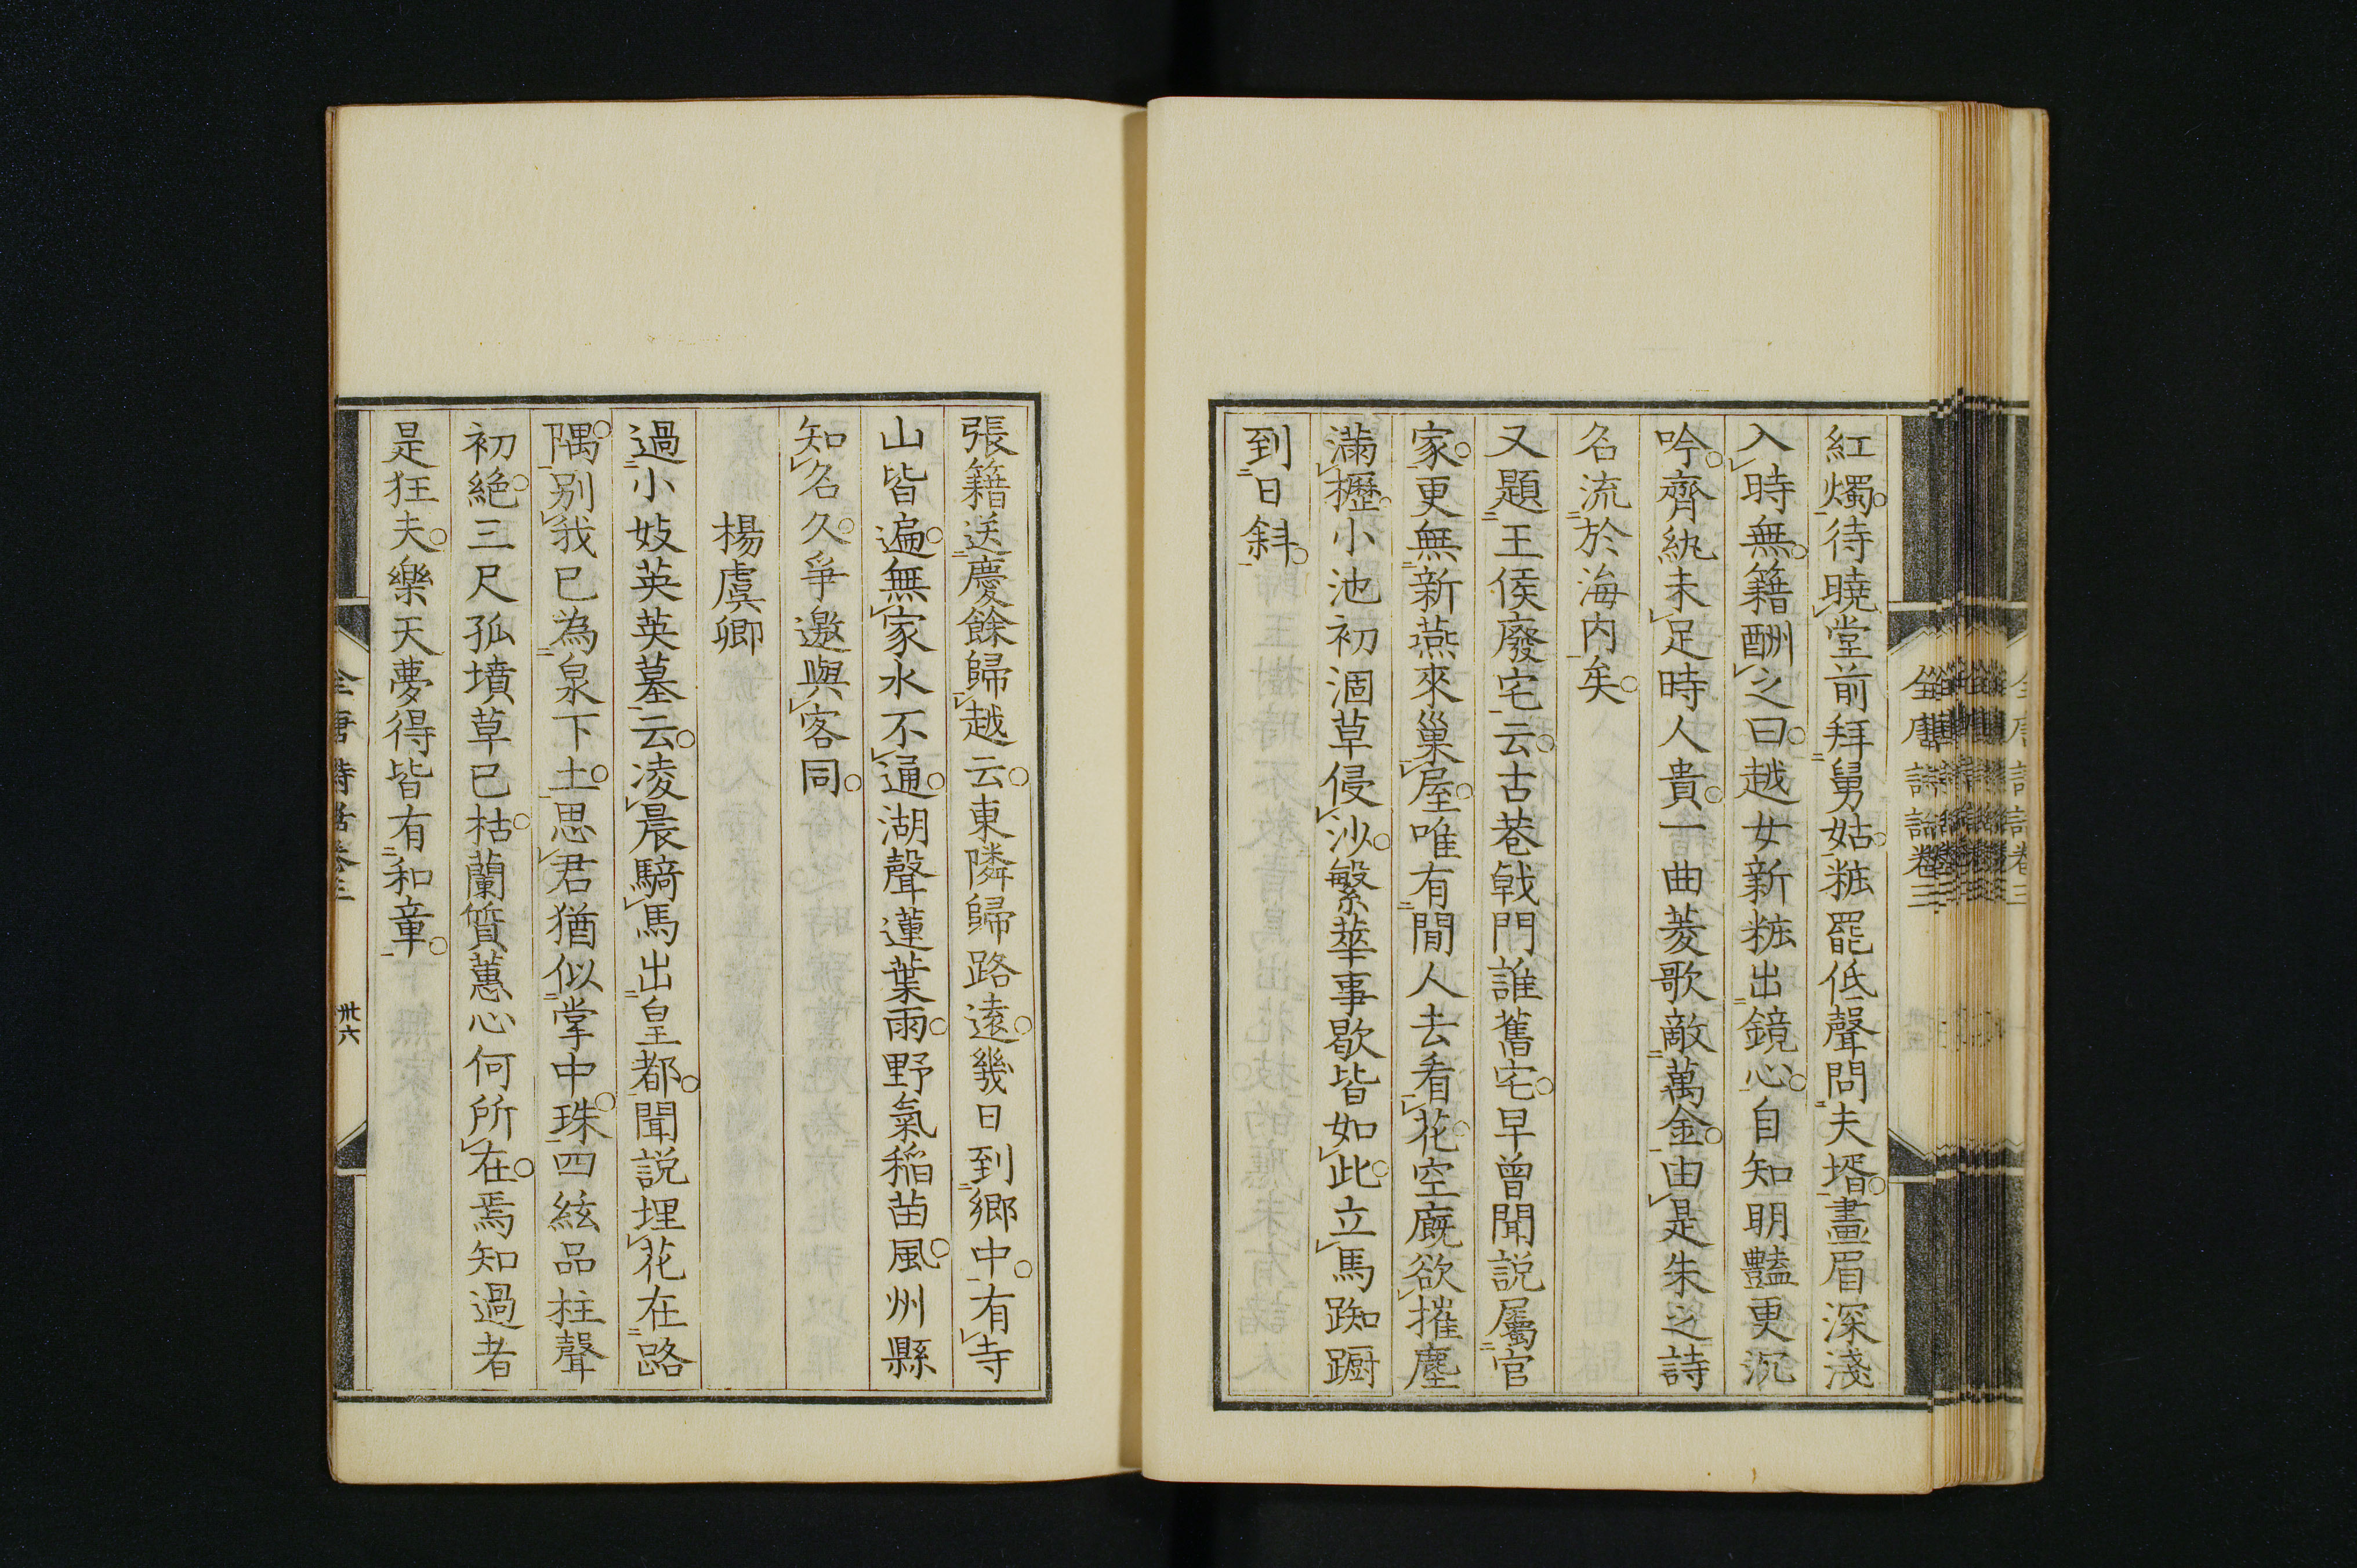 紅燭待曉堂前拜舅姑粧罷低聲問夫壻畫眉深淺
入時無籍酬之曰越女新粧出鏡心自知明豔更沉
吟齊紈未足時人貴一曲菱歌敵萬金由是朱之詩
名流於海内矣
又題王侯廢宅云古巷戟門誰舊宅早曾聞説屬官
家更無新燕來巢屋唯有閒人去看花空廐欲摧塵
滿櫪小池初涸草侵沙繁華事歇皆如此立馬踟躕
到日斜
張籍送慶餘歸越云東隣歸路遠幾日到鄉中有寺
山皆遍無家水不通湖聲蓮葉雨野氣稲苗風州縣
知名久爭邀與客同
楊虞卿
過小妓英英墓云凌晨騎馬出皇都聞説埋花在路
隅别我已為泉下土思君猶似掌中珠四絃品柱聲
初絶三尺孤墳草已枯蘭質蕙心何所在焉知過者
是狂夫樂天夢得皆有和章
全唐詩話卷三
卅六